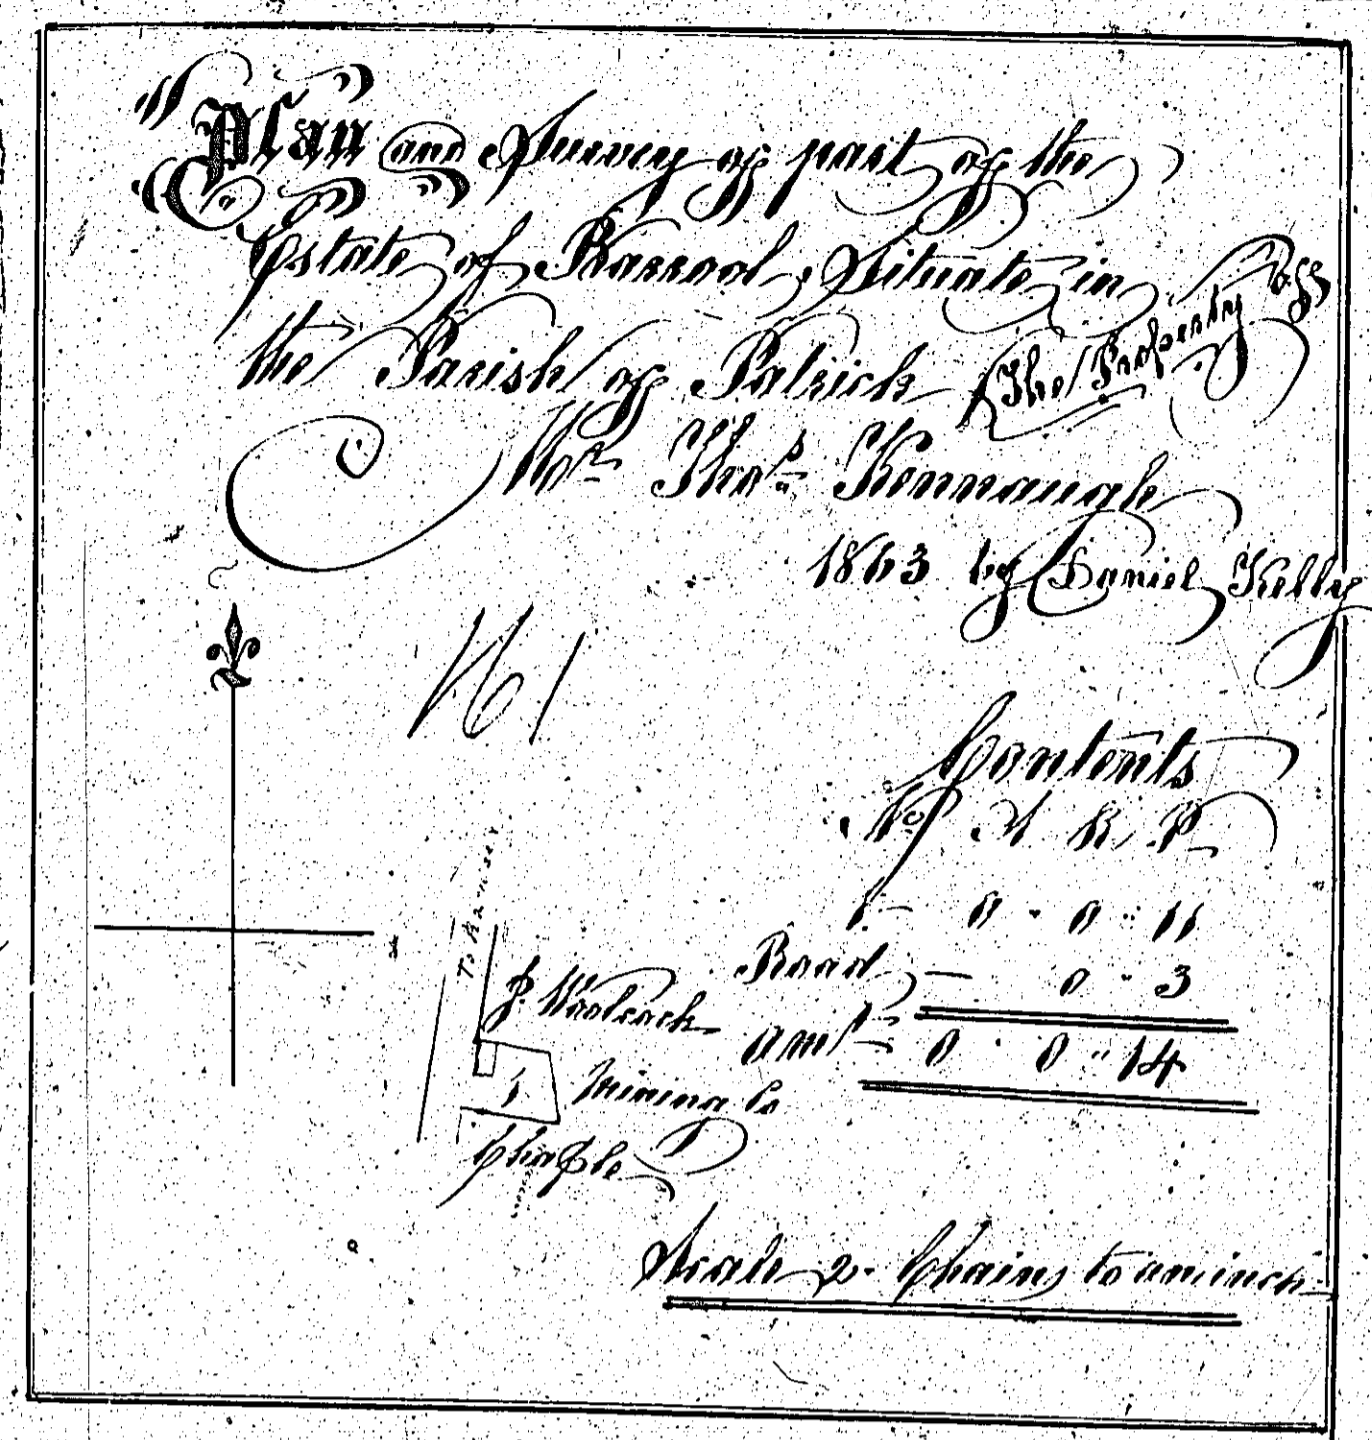 Plan and Survey of part of the
Estate of Barrool, Situate in
the Parish of Patrick The Property of
Mr Thos Kennaugh
1863 by Daniel Kelly
161
Contents
No A R P
1 - 0 - 0 - 11
Road - 0 - 3
amt - 0 - 0 - 14
To Ramsey
J. Woolcock
1 Mining Co
Chaple
Scale 2 Chains to an inch